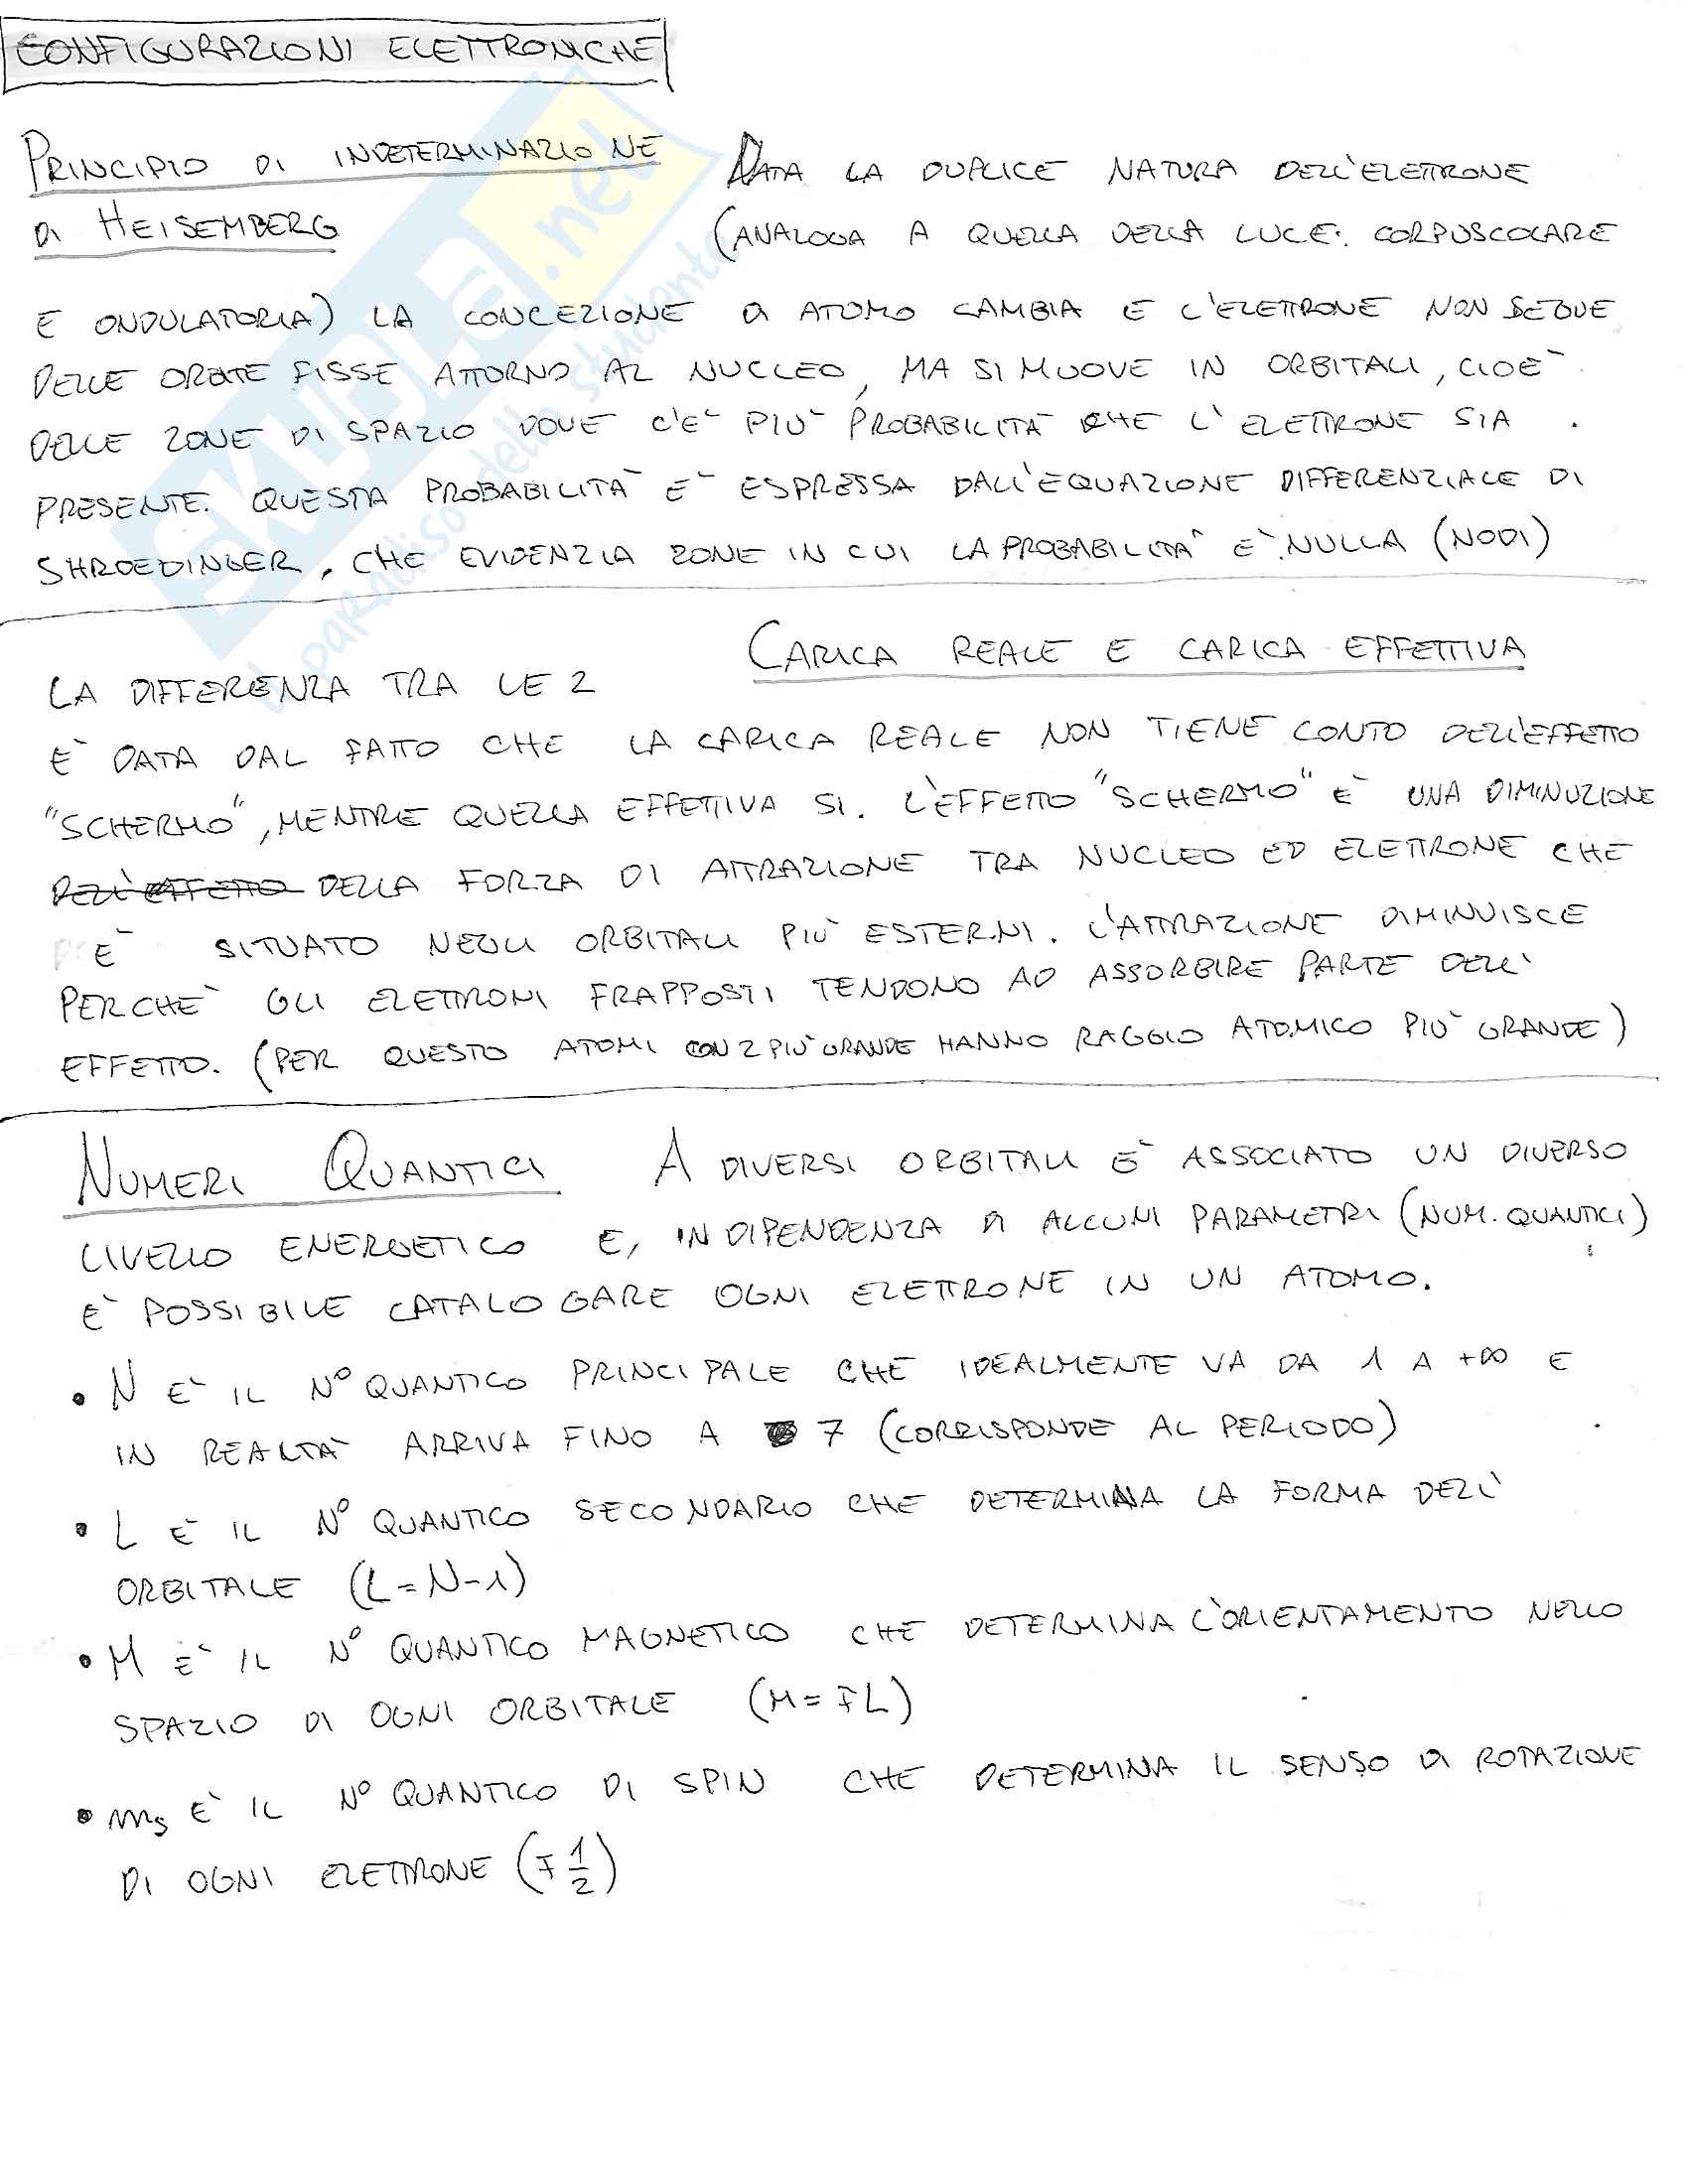 CONFIGURAZIONI ELETTRONICHE
PRINCIPIO DI INDETERMINAZIONE
DI HEISEMBERG
DATA LA DUPLICE NATURA DELL'ELETTRONE
(ANALOGA A QUELLA DELLA LUCE: CORPUSCOLARE
E ONDULATORIA) LA CONCEZIONE DI ATOMO CAMBIA E L'ELETTRONE NON SEGUE
DELLE ORBITE FISSE ATTORNO AL NUCLEO, MA SI MUOVE IN ORBITALI, CIOE'
DELLE ZONE DI SPAZIO DOVE C'E' PIU' PROBABILITA' CHE L'ELETTRONE SIA
PRESENTE. QUESTA PROBABILITA' E' ESPRESSA DALL'EQUAZIONE DIFFERENZIALE DI
SHROEDINGER, CHE EVIDENZIA ZONE IN CUI LA PROBABILITA' E' NULLA (NODI)
CARICA REALE E CARICA EFFETTIVA
LA DIFFERENZA TRA LE 2
E' DATA DAL FATTO CHE LA CARICA REALE NON TIENE CONTO DELL'EFFETTO
"SCHERMO", MENTRE QUELLA EFFETTIVA SI. L'EFFETTO "SCHERMO" E' UNA DIMINUZIONE
DELL'EFFETTO DELLA FORZA DI ATTRAZIONE TRA NUCLEO ED ELETTRONE CHE
E' SITUATO NEGLI ORBITALI PIU' ESTERNI. L'ATTRAZIONE DIMINUISCE
PERCHE' GLI ELETTRONI FRAPPOSTI TENDONO AD ASSORBIRE PARTE DELL'
EFFETTO. (PER QUESTO ATOMI CON Z PIU' GRANDE HANNO RAGGIO ATOMICO PIU' GRANDE)
NUMERI QUANTICI A DIVERSI ORBITALI E' ASSOCIATO UN DIVERSO
LIVELLO ENERGETICO E, IN DIPENDENZA DI ALCUNI PARAMETRI (NUM. QUANTICI)
E' POSSIBILE CATALOGARE OGNI ELETTRONE IN UN ATOMO.
• N E' IL N° QUANTICO PRINCIPALE CHE IDEALMENTE VA DA 1 A +∞ E
IN REALTA' ARRIVA FINO A 7 (CORRISPONDE AL PERIODO)
• L E' IL N° QUANTICO SECONDARIO CHE DETERMINA LA FORMA DELL'
ORBITALE (L=N-1)
• M E' IL N° QUANTICO MAGNETICO CHE DETERMINA L'ORIENTAMENTO NELLO
SPAZIO DI OGNI ORBITALE (M = ∓L)
• ms E' IL N° QUANTICO DI SPIN CHE DETERMINA IL SENSO DI ROTAZIONE
DI OGNI ELETTRONE (∓ 1/2)
SKUOLA.net
il paradiso dello studente